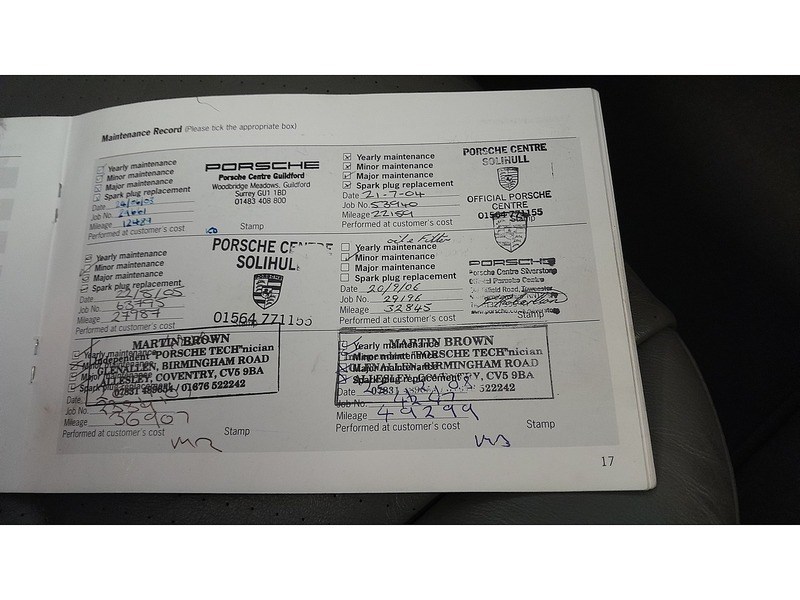 Maintenance Record (Please tick the appropriate box)
Yearly maintenance
Minor maintenance
Major maintenance
Spark plug replacement
Date
Job No.
Mileage 12487
Performed at customer's cost
PORSCHE
Porsche Centre Guildford
Woodbridge Meadows, Guildford
Surrey GU1 1BD
01483 408 800
Stamp
Yearly maintenance
Minor maintenance
Major maintenance
Spark plug replacement
Date 21-7-04
Job No. 53940
Mileage 22159
Performed at customer's cost
PORSCHE CENTRE
SOLIHULL
OFFICIAL PORSCHE
CENTRE
01564 771155
Stamp
Yearly maintenance
Minor maintenance
Major maintenance
Spark plug replacement
Date 22/8/05
Job No. 63795
Mileage 27987
Performed at customer's cost
PORSCHE CENTRE
SOLIHULL
PORSCHE
01564 771155
oil & Filter
Yearly maintenance
Minor maintenance
Major maintenance
Spark plug replacement
Date 20/9/06
Job No. 29196
Mileage 32845
Performed at customer's cost
PORSCHE
Porsche Centre Silverstone
Official Porsche Centre
Stamp
MARTIN BROWN
Independent "PORSCHE TECH"nician
GLENALLEN, BIRMINGHAM ROAD
ALLESLEY, COVENTRY, CV5 9BA
01676 522242
Yearly maintenance
Spark plug replacement
Date
Job No.
Mileage 36907
Performed at customer's cost
Stamp
MARTIN BROWN
"PORSCHE TECH"nician
BIRMINGHAM ROAD
CV5 9BA
522242
Date
Job No.
Mileage 49299
Performed at customer's cost
Stamp
17